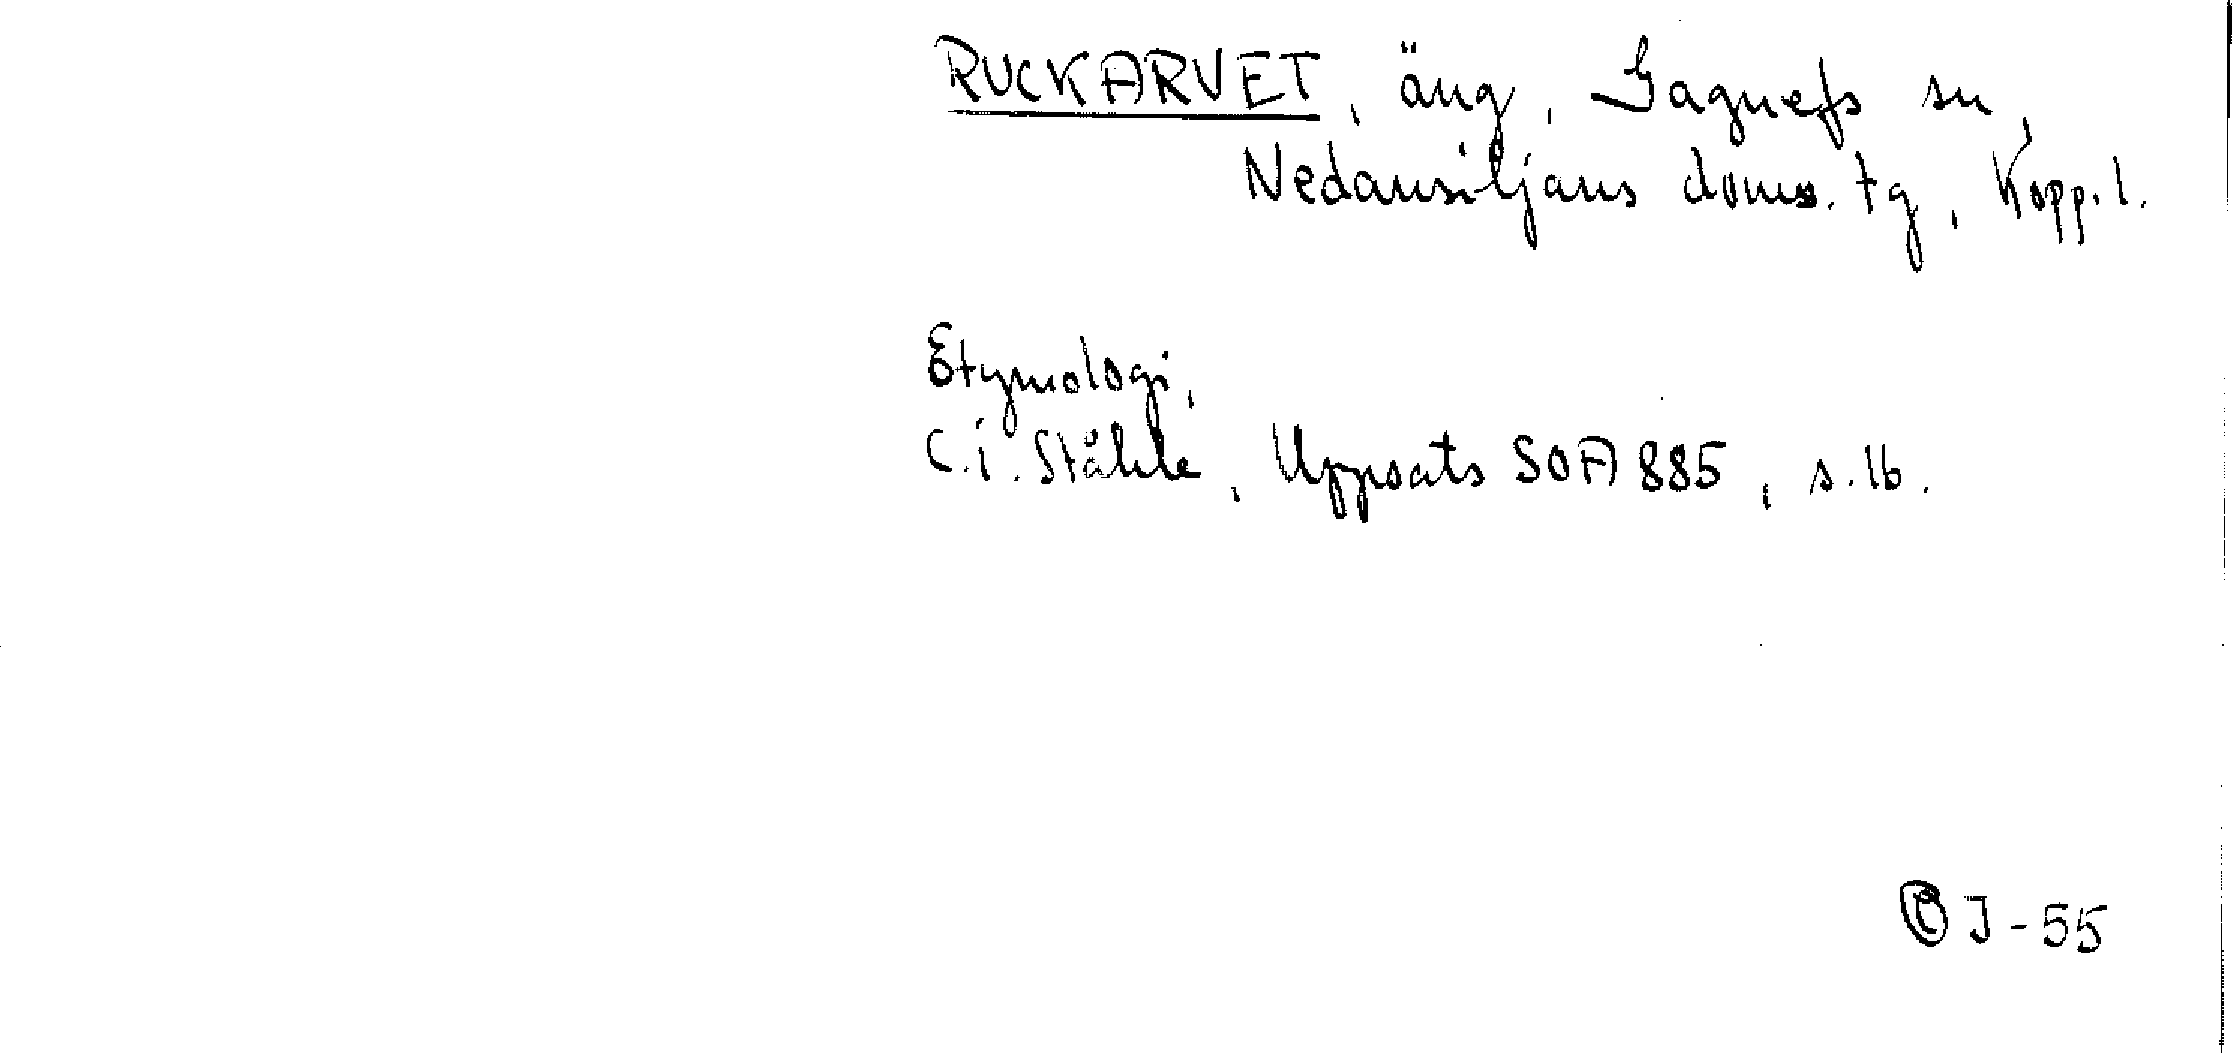 RUCKARVET, äng, Gagnefs sn,
Nedansiljans doms. tg, Kopp. l.
Etymologi,
C.I. Ståhle, Uppsats SOA 885, s. 16.
J-55